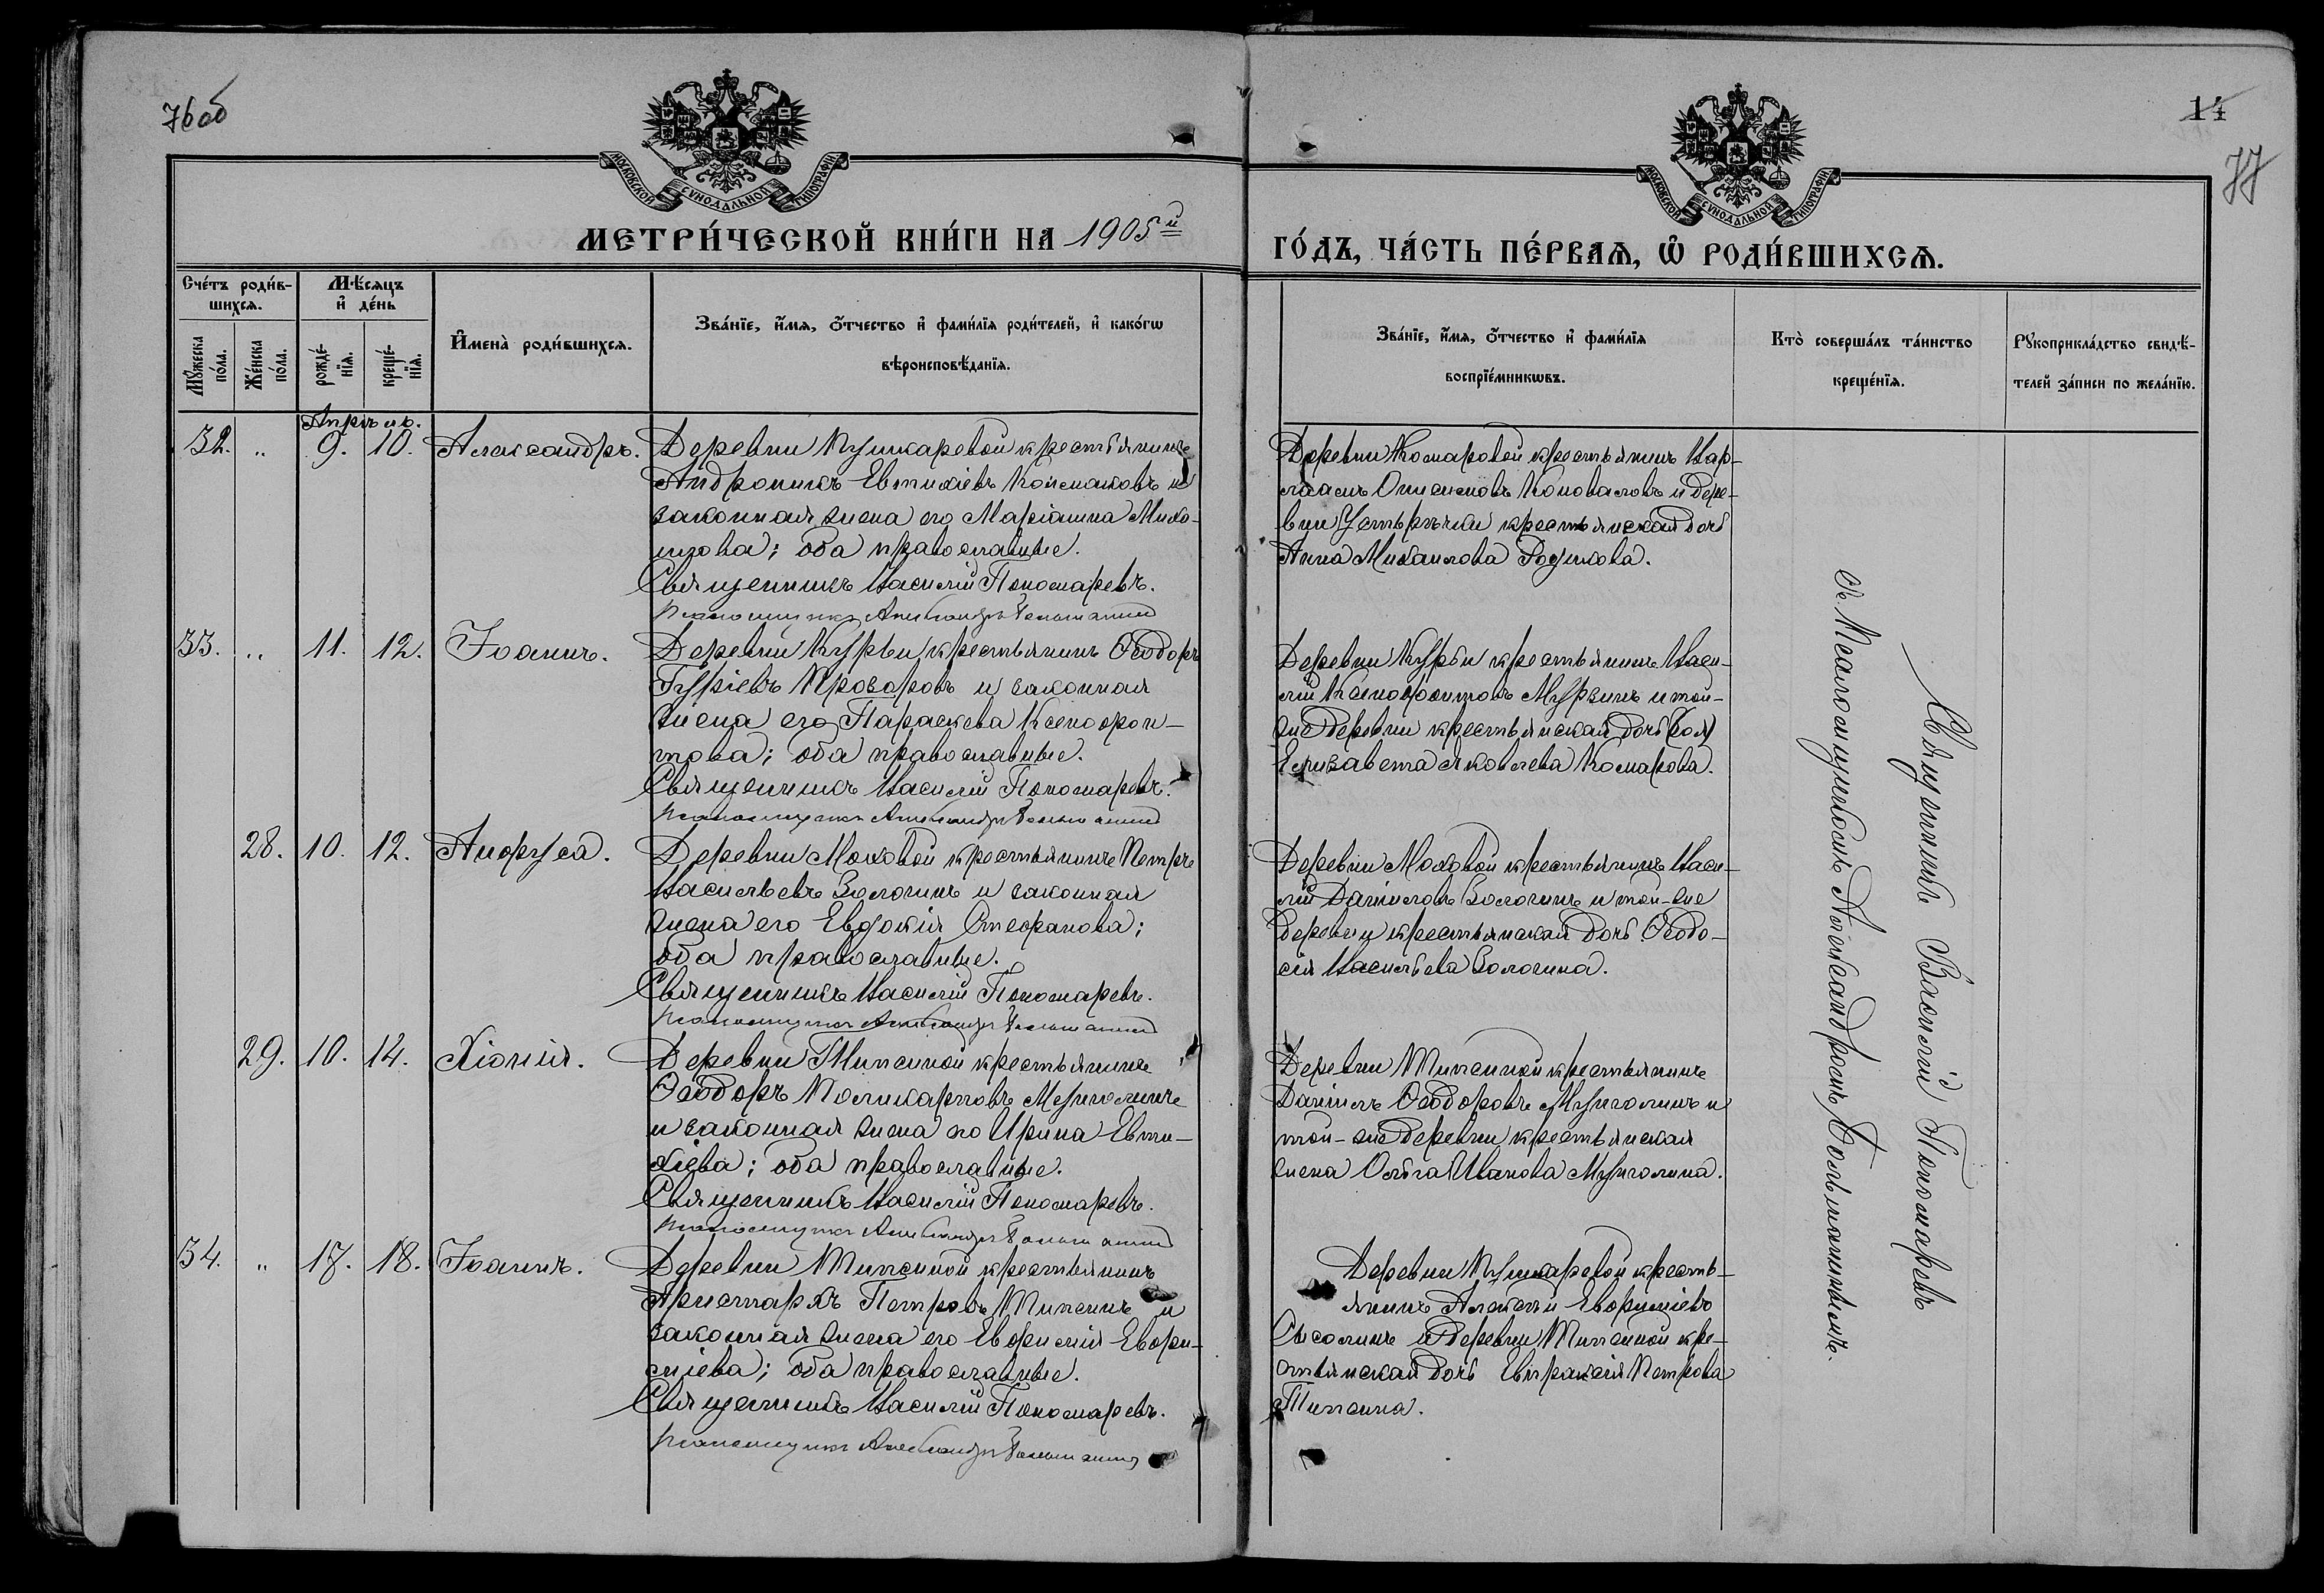 76об
14
77
МОСКОВСКОЙ СУНОДАЛЬНОЙ ТИПОГРАФІИ
МОСКОВСКОЙ СУНОДАЛЬНОЙ ТИПОГРАФІИ
МЕТРИ́ЧЕСКОЙ КНИ́ГИ НА 1905й
ГО́ДЪ, ЧА́СТЬ ПЕ́РВАѦ, Ѡ РОДИ́ВШИХСѦ.
Сче́тъ роди́в-
шихсѧ.
Мѣ́сяцъ
и҆ де́нь
Мꙋ́жеска по́ла.
Же́нска по́ла.
рожде́-
нїѧ.
креще́-
нїѧ.
И҆мена̀ роди́вшихсѧ.
Зва́нїе, и҆́мѧ, ѻ҆́тчество и҆ фами́лїѧ роди́телей, и҆ како́гѡ
вѣроисповѣ́данїѧ.
Зва́нїе, и҆́мѧ, ѻ҆́тчество и҆ фами́лїѧ
воспрїе́мникѡвъ.
Кто̀ соверша́лъ та́инство
креще́нїѧ.
Рꙋкоприкла́дство свидѣ́-
телей за́писи по жела́нїю.
Апрѣль.
32. „ 9. 10. Александръ.
Деревни Пушкаревой крестьянинъ
Андроникъ Евтихіевъ Коксмаковъ и
законная жена его Маріанна Мико-
лова; оба православные.
Священникъ Василій Пономаревъ.
Псаломщикъ Александръ
Деревни Комаровой крестьянинъ Вар-
лаамъ Онисимовъ Коноваловъ и дере-
вни Устьрѣчки крестьянская дочь
Анна Михаилова Родикова.
33. „ 11. 12. Іоаннъ.
Деревни Курьи крестьянинъ Ѳеодоръ
Гуріевъ Прозоровъ и законная
жена его Параскева Ксенофон-
това; оба православные.
Священникъ Василій Пономаревъ.
Псаломщикъ Александръ
Деревни Курьи крестьянинъ Васи-
лій Ксенофонтовъ Мурзинъ и той-
же деревни крестьянская дочь
Елизавета Яковлева Комарова.
28. 10. 12. Анфуса.
Деревни Моховой крестьянинъ Петръ
Васильевъ Вологинъ и законная
жена его Евдокія Стефанова;
оба православные.
Священникъ Василій Пономаревъ.
Псаломщикъ Александръ
Деревни Моховой крестьянинъ Васи-
лій Даніиловъ Вологинъ и той-же
деревни крестьянская дочь Ѳеодо-
сія Васильева Вологина.
29. 10. 14. Хіонія.
Деревни Типсиной крестьянинъ
Ѳеодоръ Поликарповъ
и законная жена его Ирина Евти-
хіева; оба православные.
Священникъ Василій Пономаревъ.
Псаломщикъ Александръ
Деревни Типсиной крестьянинъ
Даніилъ Ѳеодоровъ и
той-же деревни крестьянская
жена Ольга Иванова
34. „ 17. 18. Іоаннъ.
Деревни Типсиной крестьянинъ
Аристархъ Петровъ Типсинъ и
законная жена его Евфимія Евфи-
міева; оба православные.
Священникъ Василій Пономаревъ.
Псаломщикъ Александръ
Деревни Пушкаревой кресть-
янинъ Алексѣй Евфиміевъ
Сысолинъ и деревни Типсиной кре-
стьянская дочь Евпраксія Петрова
Типсина.
Священникъ Василій Пономаревъ
съ Псаломщикомъ Александромъ